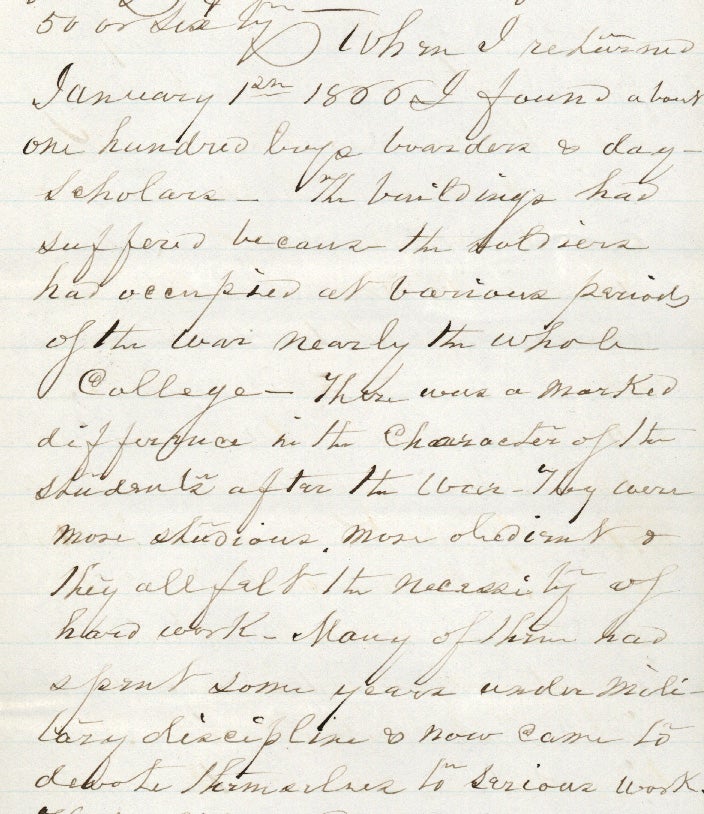 50 or six
When I returned
January 1st 1866 I found about
one hundred boys boarders & day-
scholars - The buildings had
suffered because the soldiers
had occupied at various periods
of the war nearly the whole
College - There was a marked
difference in the Character of the
students after the War - They were
more studious, more obedient &
they all felt the necessity of
hard work - Many of them had
spent some years under mili-
tary discipline & now came to
devote themselves to serious work.